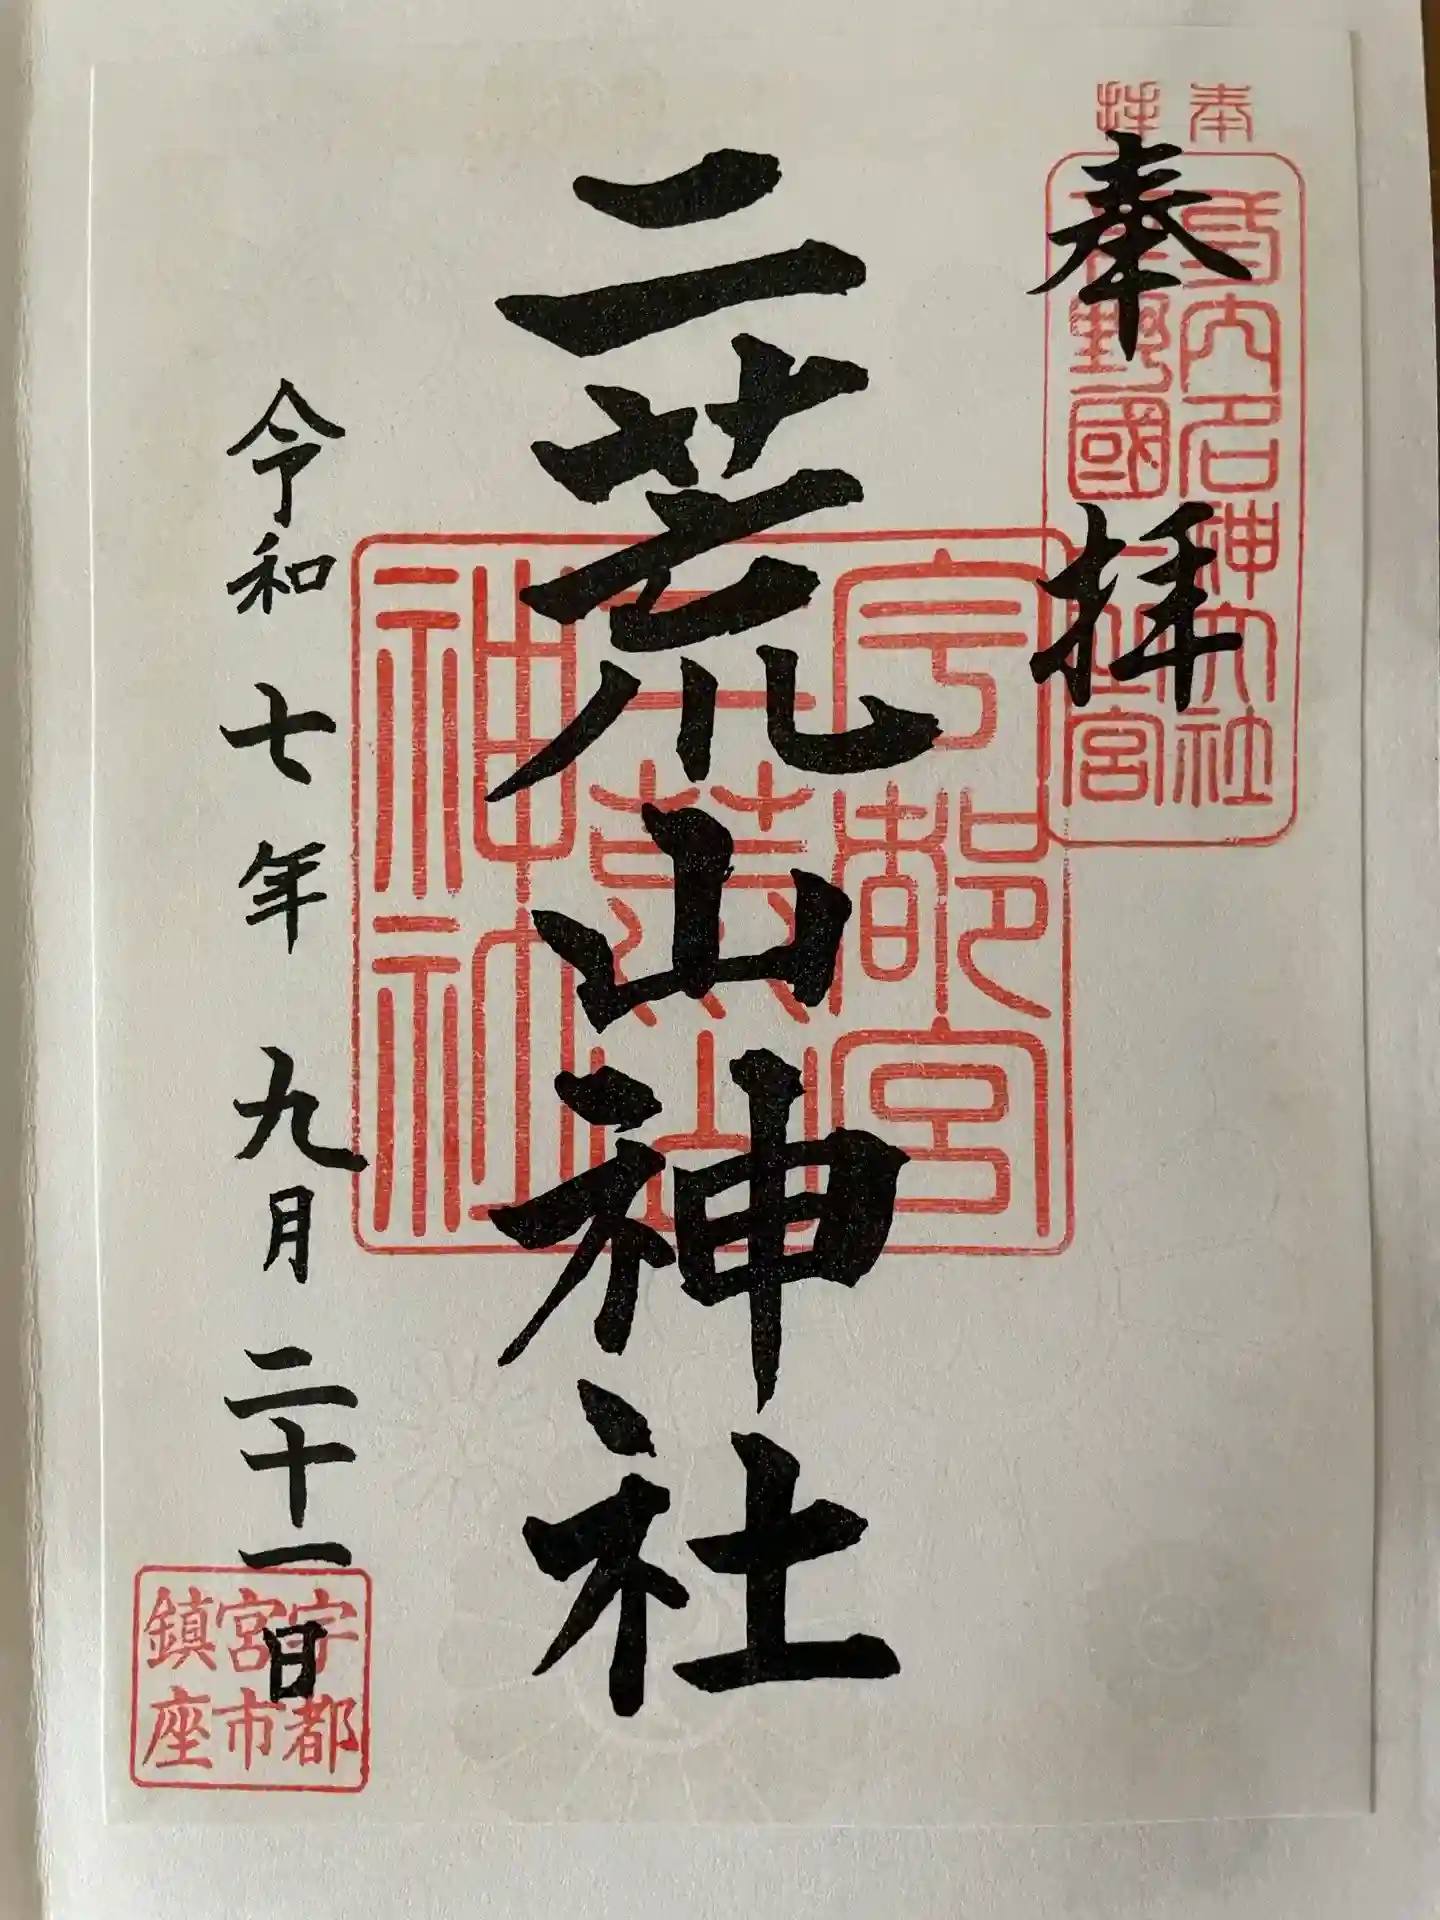 奉拝
式内名神大社
野國一之宮
奉拝
宇都宮
二荒山
神社
二荒山神社
令和七年九月二十一日
宇都
宮市
鎮座